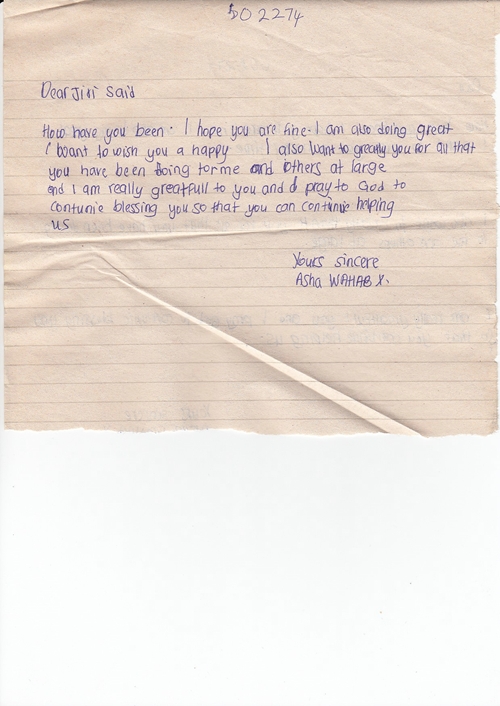 DO 2274
Dear Jiji Said
How have you been. I hope you are fine. I am also doing great
I want to wish you a happy I also want to greatly you for all that
you have been doing for me and others at large
and I am really greatfull to you and I pray to God to
contunie blessing you so that you can contunie helping
us
Yours sincere
Asha WAHAB X.